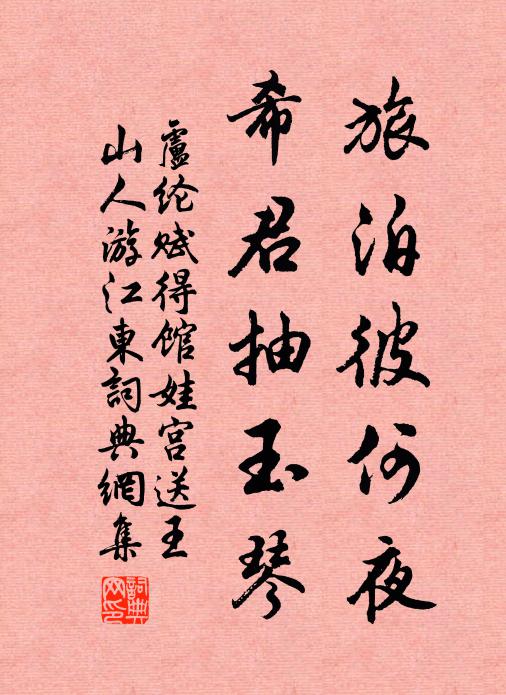 旅泊彼何夜
希君抽玉琴
盧纶赋得馆娃宫送王
山人游江東詞典網集
詞典网印